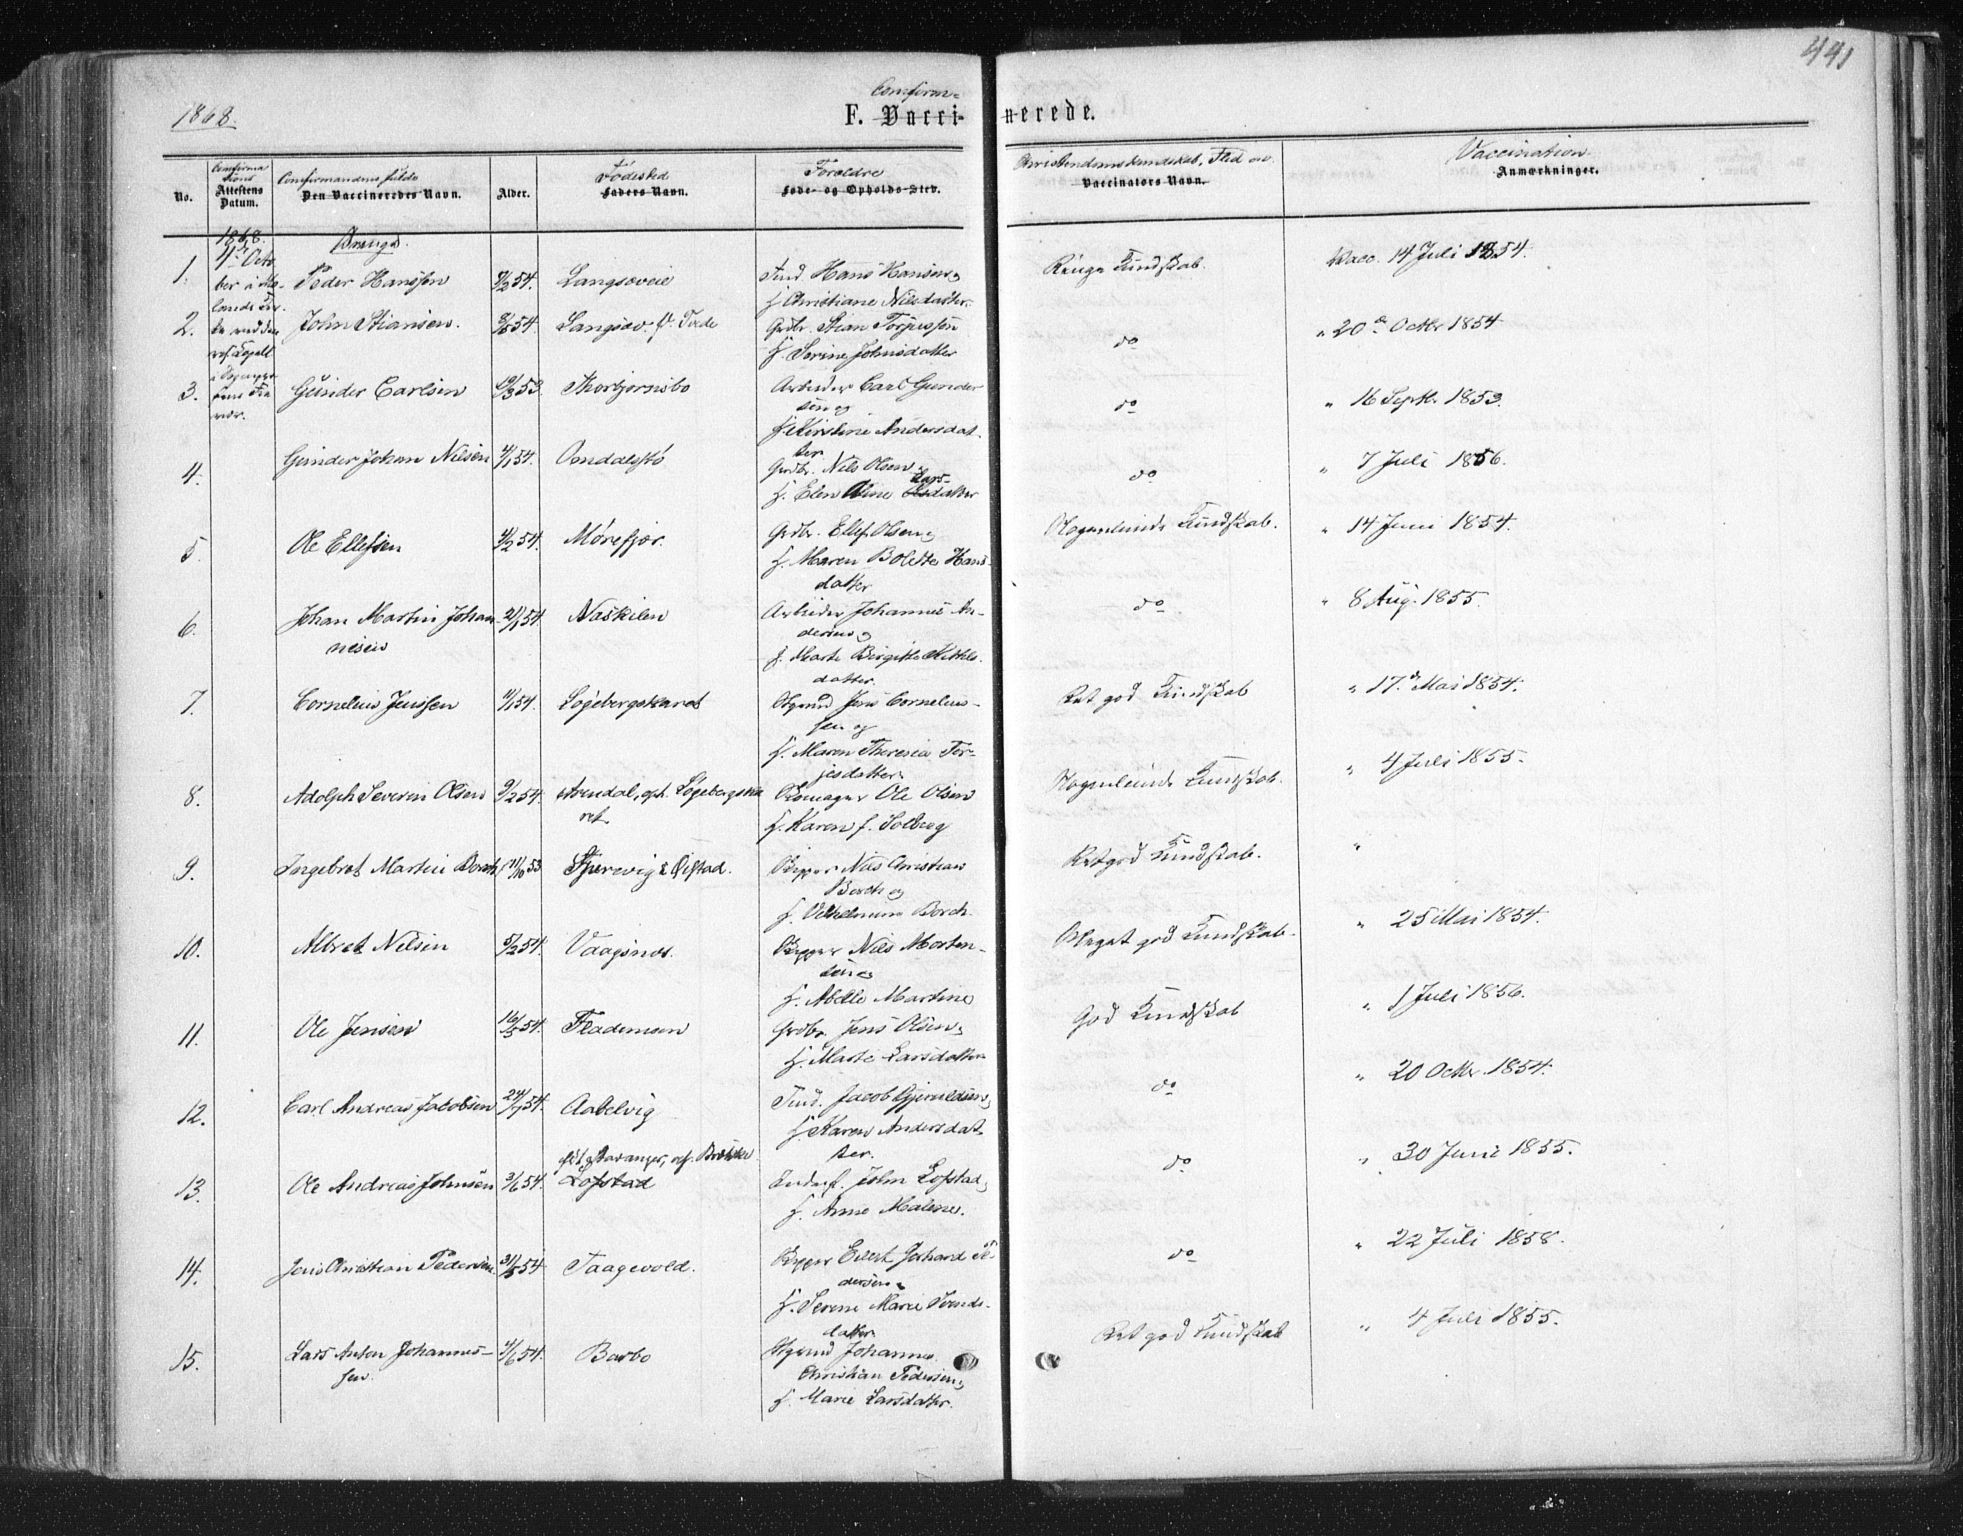 441
1868.
Confirm-
F. Vaccinerede.
Confirma
tions
Attestens
Datum.
No.
Confirmandens fulde
Den Vaccineredes Navn.
Alder.
Födested
Faders Navn.
Forældre
Føde- og Opholds-Sted.
Christendomskundskab, Flid
Vaccinators Navn.
Vaccination
Anmærkninger.
1868.
Drenge.
1. Peder Hanssen 54. Langsæveie Hans Hansen
f. Christiane Nilsdatter.
Kundskab. Vacc. 14 Juli 1854.
2. John Stiansen. 54. Langsæv. Grdbr. Stian Torjussen
f. Serine Johnsdatter
do " 20de Octbr 1854
3. Gunder Carlsen 53. Thorbjornsbo Arbeider Carl Gunder
sen og
f. Kirstine Andersdat
ter
do " 16 Septbr 1853.
4. Gunder Johan Nilsen 4/1 54. Omdalsbø Grdbr. Nils Olsen
f. Elen Aline Larsdatter
do " 7 Juli 1856.
5. Ole Ellefsen 54. Mørefjær. Grdbr. Ellef Olsen
f. Maren Bolette Hans-
datter
Nogenlunde Kundskab. " 14 Juni 1854.
6. Johan Martin Johan
nesen
54. Naskilen Arbeider Johannes An-
dersen
f. Marte Birgitte
datter.
do " 8 Aug. 1855.
7. Cornelius Jenssen 11/1 54. Løgebergskaret Jens Cornelius-
sen og
f. Maren Theresia Ter-
jesdatter
Ret god Kundskab " 17de Mai 1854.
8. Adolph Severin Olsen 9/2 54. Arendal, oph. Løgebergska
ret.
Ole Olsen
f. Karen f. Solberg
Nogenlunde Kundskab. " 4 Juli 1855.
9. Ingebret Martin Borch 11/10 53 Skipper Nils Christian
Borch og
f. Vilhelmine Borch.
Ret god Kundskab. "
10. Albret Nilsen 5/2 54. Vaagsnes. Skipper Nils Morten-
sen
f. Abelle Martine
Meget god Kundskab. " 25 Mai 1854.
11. Ole Jensen 16/5 54. Flademoen Grdbr. Jens Olsen
f. Marte Larsdatter
God Kundskab " 1 Juli 1856.
12. Carl Andreas Jacobsen 54. Aabelvig Jacob Gjeruldsen
f. Karen Andersdat
ter.
do " 20 Octbr. 1854.
13. Ole Andreas Johnsen 3/6 54. Stavanger,
Lofstad
John Lofstad
f. Anne Malene.
do " 30 Juni 1855.
14. Jens Christian Pedersen 31/5 54. Taagevold. Skipper Evert Gerhard Pe
dersen
f. Serene Marie Svends-
datter
do " 22 Juli 1858.
15. Lars Anton Johannes-
sen
4/6 54. Barbo Johannes
Christian Pedersen
f. Marie Larsdatter.
Ret god Kundskab " 4 Juli 1855.